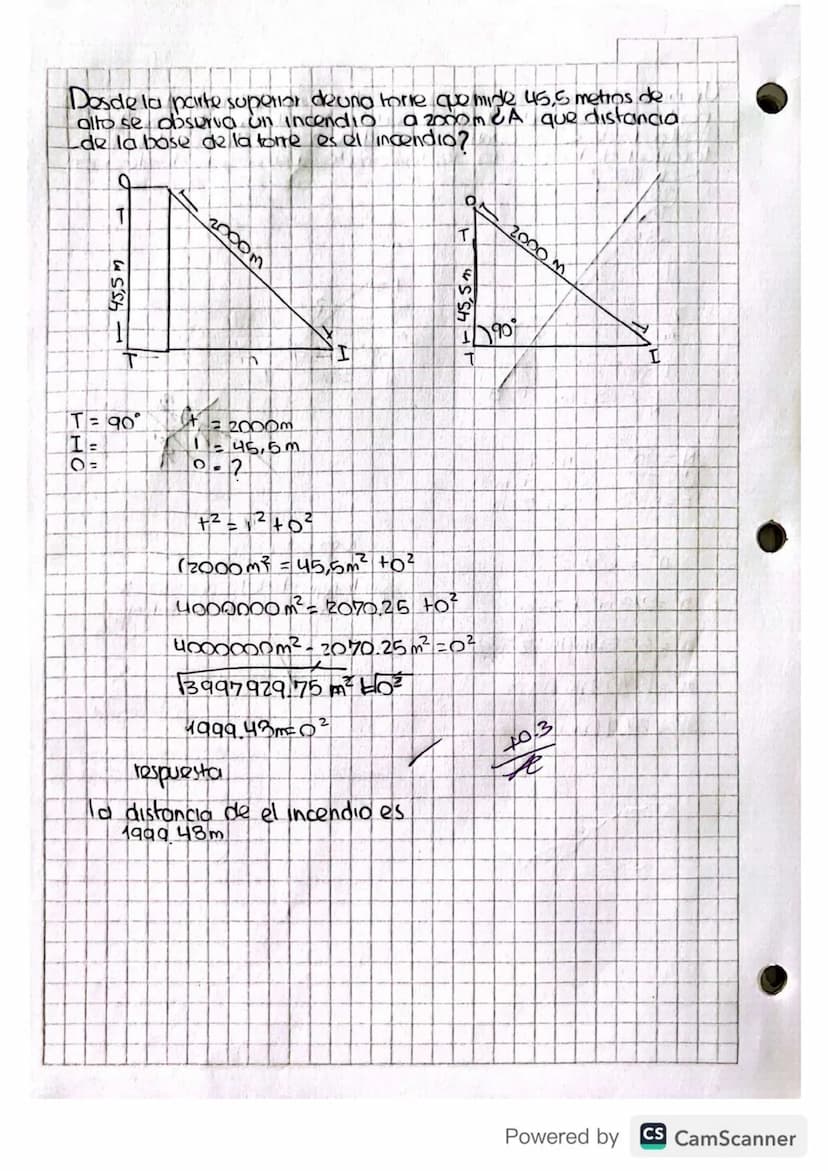 Desde la parte superior de una torre que mide 45,5 metros de
alto se observa un incendio a 2000 m ¿A que distancia
de la base de la torre es el incendio?
O
T
45,5 m
2000 m
T
I
O
T
45,5 m
2000 m
90°
T
I
T = 90° t = 2000m
I = i = 45,5 m
O = o = ?
t² = i² + o²
(2000m)² = 45,5m² + o²
4000000m² = 2070.25 + o²
4000000m² - 2070.25 m² = o²
√3997929.75 m² = √o²
1999.43m = o²
+0.3
respuesta
la distancia de el incendio es
1999.43m
Powered by CS CamScanner